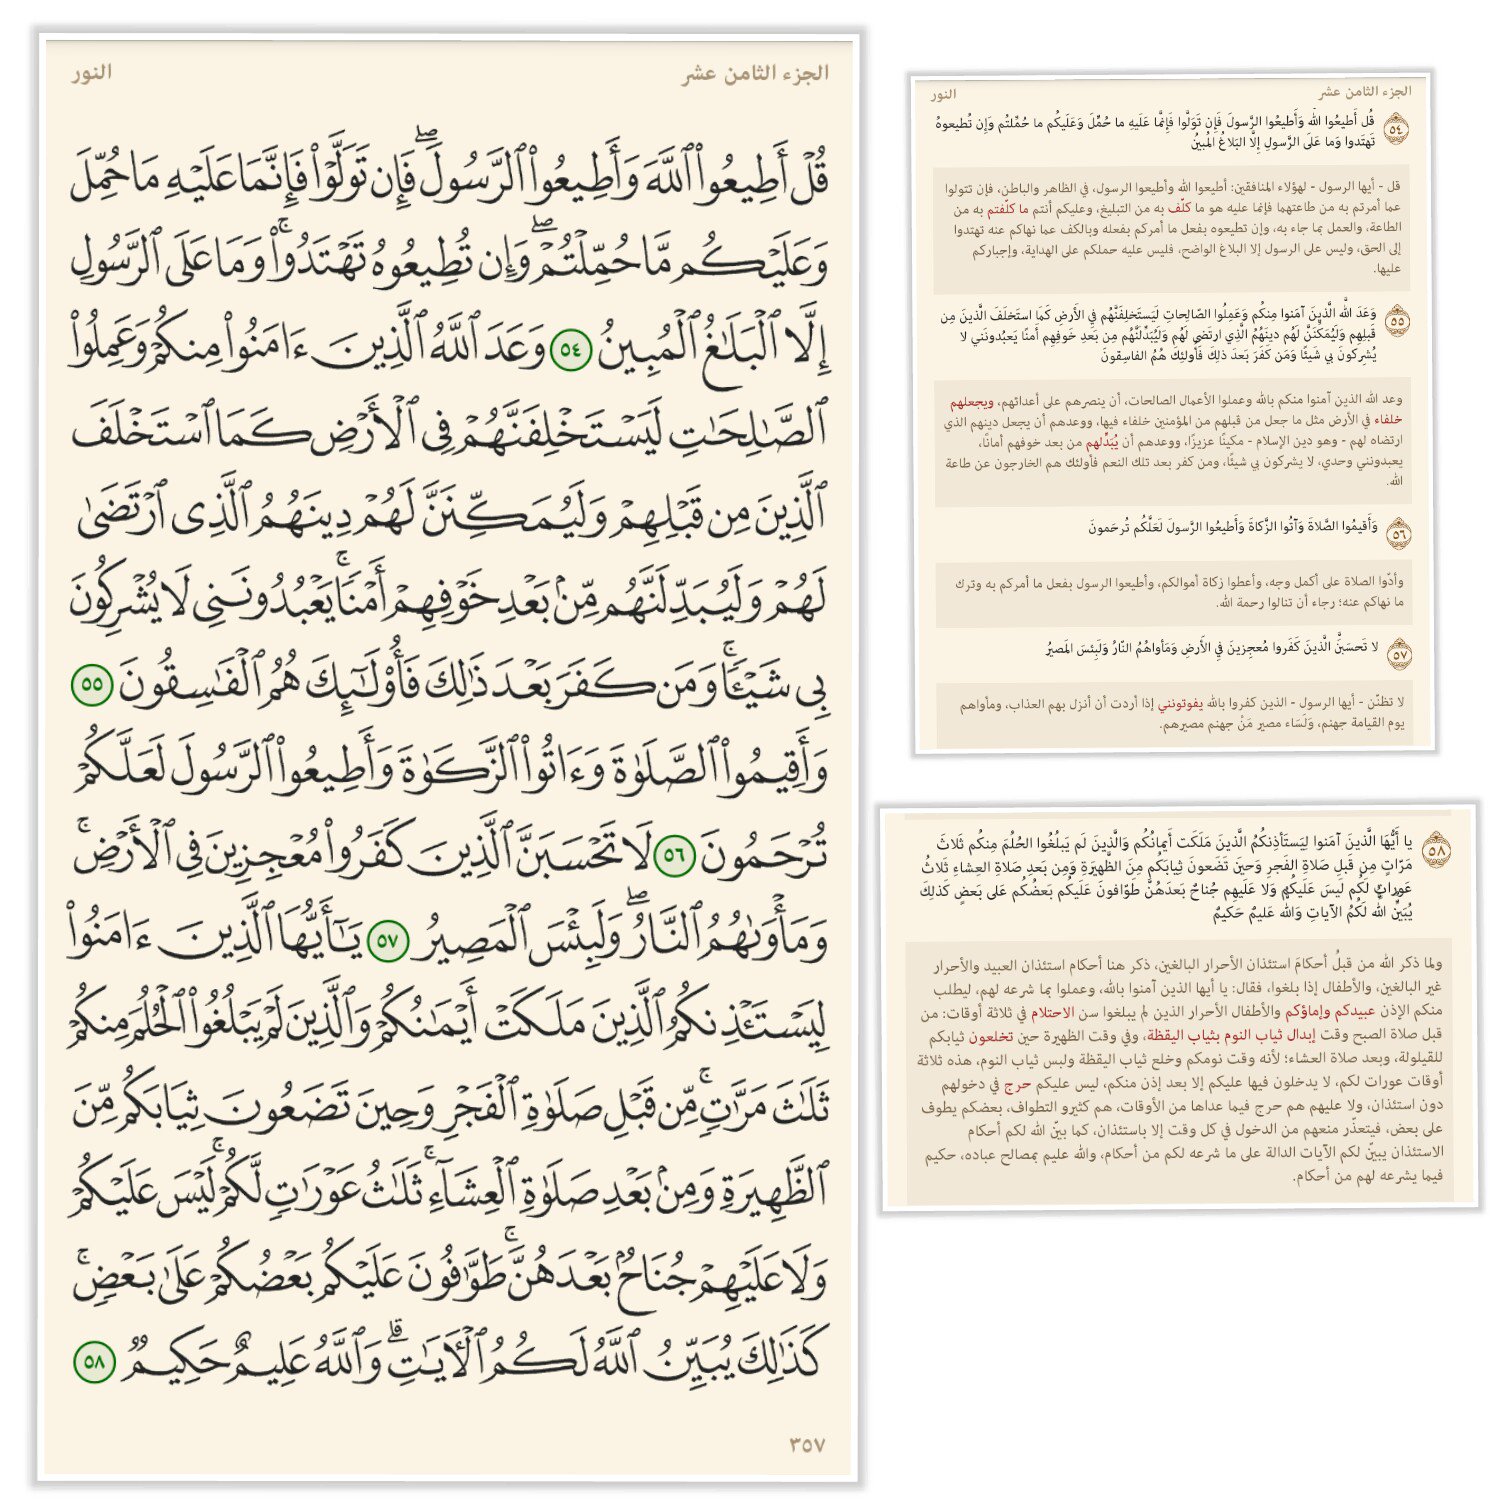 الجزء الثامن عشر
النور
قُلْ أَطِيعُوا۟ ٱللَّهَ وَأَطِيعُوا۟ ٱلرَّسُولَ ۖ فَإِن تَوَلَّوْا۟ فَإِنَّمَا عَلَيْهِ مَا حُمِّلَ
وَعَلَيْكُم مَّا حُمِّلْتُمْ ۖ وَإِن تُطِيعُوهُ تَهْتَدُوا۟ ۚ وَمَا عَلَى ٱلرَّسُولِ
إِلَّا ٱلْبَلَـٰغُ ٱلْمُبِينُ ٥٤ وَعَدَ ٱللَّهُ ٱلَّذِينَ ءَامَنُوا۟ مِنكُمْ وَعَمِلُوا۟
ٱلصَّـٰلِحَـٰتِ لَيَسْتَخْلِفَنَّهُمْ فِى ٱلْأَرْضِ كَمَا ٱسْتَخْلَفَ
ٱلَّذِينَ مِن قَبْلِهِمْ وَلَيُمَكِّنَنَّ لَهُمْ دِينَهُمُ ٱلَّذِى ٱرْتَضَىٰ
لَهُمْ وَلَيُبَدِّلَنَّهُم مِّنۢ بَعْدِ خَوْفِهِمْ أَمْنًا ۚ يَعْبُدُونَنِى لَا يُشْرِكُونَ
بِى شَيْـًٔا ۚ وَمَن كَفَرَ بَعْدَ ذَٰلِكَ فَأُو۟لَـٰٓئِكَ هُمُ ٱلْفَـٰسِقُونَ ٥٥
وَأَقِيمُوا۟ ٱلصَّلَوٰةَ وَءَاتُوا۟ ٱلزَّكَوٰةَ وَأَطِيعُوا۟ ٱلرَّسُولَ لَعَلَّكُمْ
تُرْحَمُونَ ٥٦ لَا تَحْسَبَنَّ ٱلَّذِينَ كَفَرُوا۟ مُعْجِزِينَ فِى ٱلْأَرْضِ ۚ
وَمَأْوَىٰهُمُ ٱلنَّارُ ۖ وَلَبِئْسَ ٱلْمَصِيرُ ٥٧ يَـٰٓأَيُّهَا ٱلَّذِينَ ءَامَنُوا۟
لِيَسْتَـْٔذِنكُمُ ٱلَّذِينَ مَلَكَتْ أَيْمَـٰنُكُمْ وَٱلَّذِينَ لَمْ يَبْلُغُوا۟ ٱلْحُلُمَ مِنكُمْ
ثَلَـٰثَ مَرَّٰتٍ ۚ مِّن قَبْلِ صَلَوٰةِ ٱلْفَجْرِ وَحِينَ تَضَعُونَ ثِيَابَكُم مِّنَ
ٱلظَّهِيرَةِ وَمِنۢ بَعْدِ صَلَوٰةِ ٱلْعِشَآءِ ۚ ثَلَـٰثُ عَوْرَٰتٍ لَّكُمْ ۚ لَيْسَ عَلَيْكُمْ
وَلَا عَلَيْهِمْ جُنَاحٌۢ بَعْدَهُنَّ ۚ طَوَّٰفُونَ عَلَيْكُم بَعْضُكُمْ عَلَىٰ بَعْضٍ ۚ
كَذَٰلِكَ يُبَيِّنُ ٱللَّهُ لَكُمُ ٱلْـَٔايَـٰتِ ۗ وَٱللَّهُ عَلِيمٌ حَكِيمٌ ٥٨
٣٥٧
الجزء الثامن عشر
النور
٥٤ قُل أَطيعُوا اللَّهَ وَأَطيعُوا الرَّسولَ فَإِن تَوَلَّوا فَإِنَّما عَلَيهِ ما حُمِّلَ وَعَلَيكُم ما حُمِّلتُم وَإِن تُطيعوهُ
تَهتَدوا وَما عَلَى الرَّسولِ إِلَّا البَلاغُ المُبينُ
قل - أيها الرسول - لهؤلاء المنافقين: أطيعوا الله وأطيعوا الرسول، في الظاهر والباطن، فإن تتولوا
عما أمرتم به من طاعتهما فإنما عليه هو ما كلّف به من التبليغ، وعليكم أنتم ما كلّفتم به من
الطاعة، والعمل بما جاء به، وإن تطيعوه بفعل ما أمركم بفعله وبالكف عما نهاكم عنه تهتدوا
إلى الحق، وليس على الرسول إلا البلاغ الواضح، فليس عليه حملكم على الهداية، وإجباركم
عليها.
٥٥ وَعَدَ اللَّهُ الَّذينَ آمَنوا مِنكُم وَعَمِلُوا الصّالِحاتِ لَيَستَخلِفَنَّهُم فِي الأَرضِ كَمَا استَخلَفَ الَّذينَ مِن
قَبلِهِم وَلَيُمَكِّنَنَّ لَهُم دينَهُمُ الَّذِي ارتَضى لَهُم وَلَيُبَدِّلَنَّهُم مِن بَعدِ خَوفِهِم أَمنًا يَعبُدونَني لا
يُشرِكونَ بي شَيئًا وَمَن كَفَرَ بَعدَ ذلِكَ فَأُولئِكَ هُمُ الفاسِقونَ
وعد الله الذين آمنوا منكم بالله وعملوا الأعمال الصالحات، أن ينصرهم على أعدائهم، ويجعلهم
خلفاء في الأرض مثل ما جعل من قبلهم من المؤمنين خلفاء فيها، ووعدهم أن يجعل دينهم الذي
ارتضاه لهم - وهو دين الإسلام - مكينًا عزيزًا، ووعدهم أن يُبَدِّلهم من بعد خوفهم أمانًا،
يعبدونني وحدي، لا يشركون بي شيئًا، ومن كفر بعد تلك النعم فأولئك هم الخارجون عن طاعة
الله.
٥٦ وَأَقيمُوا الصَّلاةَ وَآتُوا الزَّكاةَ وَأَطيعُوا الرَّسولَ لَعَلَّكُم تُرحَمونَ
وأدّوا الصلاة على أكمل وجه، وأعطوا زكاة أموالكم، وأطيعوا الرسول بفعل ما أمركم به وترك
ما نهاكم عنه؛ رجاء أن تنالوا رحمة الله.
٥٧ لا تَحسَبَنَّ الَّذينَ كَفَروا مُعجِزينَ فِي الأَرضِ وَمَأواهُمُ النّارُ وَلَبِئسَ المَصيرُ
لا تظنّن - أيها الرسول - الذين كفروا بالله يفوتونني إذا أردت أن أنزل بهم العذاب، ومأواهم
يوم القيامة جهنم، وَلَسَاء مصير مَنْ جهنم مصيرهم.
٥٨ يا أَيُّهَا الَّذينَ آمَنوا لِيَستَأذِنكُمُ الَّذينَ مَلَكَت أَيمانُكُم وَالَّذينَ لَم يَبلُغُوا الحُلُمَ مِنكُم ثَلاثَ
مَرّاتٍ مِن قَبلِ صَلاةِ الفَجرِ وَحينَ تَضَعونَ ثِيابَكُم مِنَ الظَّهيرَةِ وَمِن بَعدِ صَلاةِ العِشاءِ ثَلاثُ
عَوراتٍ لَكُم لَيسَ عَلَيكُم وَلا عَلَيهِم جُناحٌ بَعدَهُنَّ طَوّافونَ عَلَيكُم بَعضُكُم عَلى بَعضٍ كَذلِكَ
يُبَيِّنُ اللَّهُ لَكُمُ الآياتِ وَاللَّهُ عَليمٌ حَكيمٌ
ولما ذكر الله من قبلُ أحكامَ استئذان الأحرار البالغين، ذكر هنا أحكام استئذان العبيد والأحرار
غير البالغين، والأطفال إذا بلغوا، فقال: يا أيها الذين آمنوا بالله، وعملوا بما شرعه لهم، ليطلب
منكم الإذن عبيدكم وإماؤكم والأطفال الأحرار الذين لم يبلغوا سن الاحتلام في ثلاثة أوقات: من
قبل صلاة الصبح وقت إبدال ثياب النوم بثياب اليقظة، وفي وقت الظهيرة حين تخلعون ثيابكم
للقيلولة، وبعد صلاة العشاء؛ لأنه وقت نومكم وخلع ثياب اليقظة ولبس ثياب النوم، هذه ثلاثة
أوقات عورات لكم، لا يدخلون فيها عليكم إلا بعد إذن منكم، ليس عليكم حرج في دخولهم
دون استئذان، ولا عليهم هم حرج فيما عداها من الأوقات، هم كثيرو التطواف، بعضكم يطوف
على بعض، فيتعذّر منعهم من الدخول في كل وقت إلا باستئذان، كما بيّن الله لكم أحكام
الاستئذان يبيّن لكم الآيات الدالة على ما شرعه لكم من أحكام، والله عليم بمصالح عباده، حكيم
فيما يشرعه لهم من أحكام.